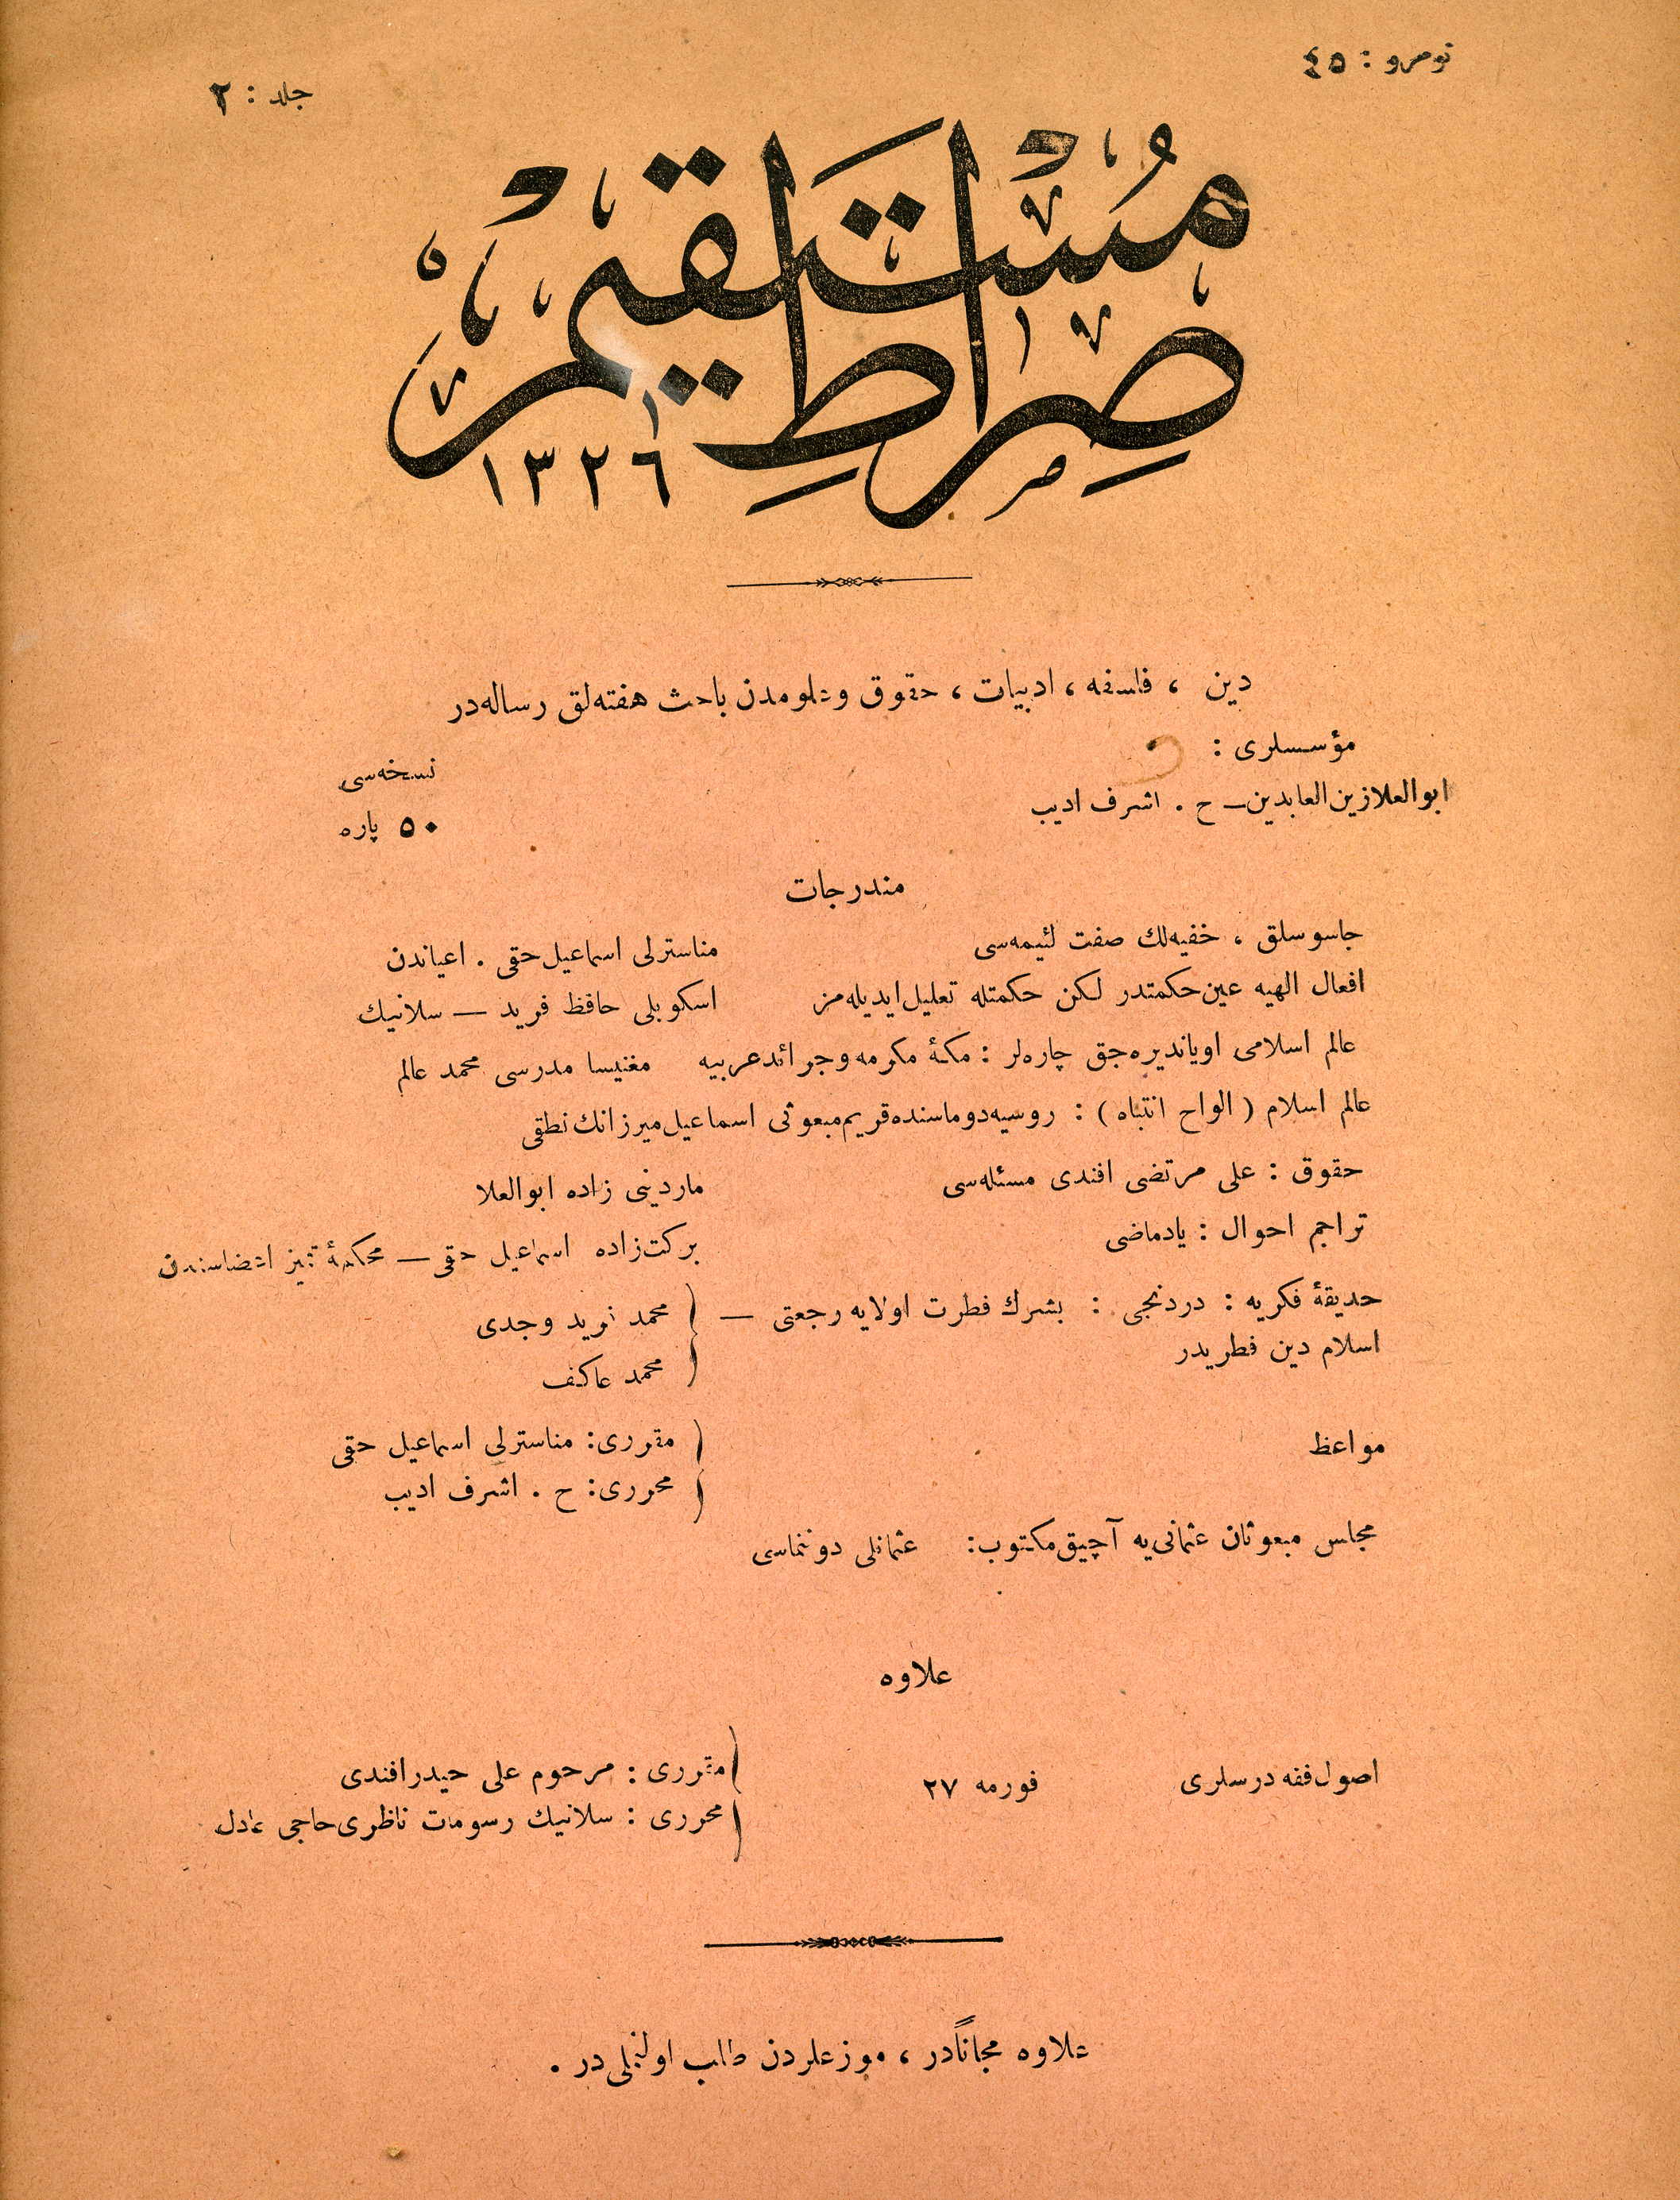 نومرو : ٤٥
جلد : ٢
صِرَاطِ مُسْتَقِيم
١٣٢٦
دين ، فلسفه ، ادبيات ، حقوق وعلومدن باحث هفته‌لق رساله‌در
مؤسسلرى :
ابوالعلا زين العابدين — ح . اشرف اديب
نسخه‌سى
٥٠ پاره
مندرجات
جاسوسلق ، خفيه‌لك صفت لئيمه‌سى مناسترلى اسماعيل حقى . اعياندن
افعال الهيه عين حكمتدر لكن حكمتله تعليل ايديله‌مز اسكوبلى حافظ فريد — سلانيك
عالم اسلامى اويانديره‌جق چاره‌لر : مكۀ مكرمه وجرائد عربيه مغنيسا مدرسى محمد عالم
عالم اسلام ( الواح انتباه ) : روسيه دوماسنده قريم مبعوثى اسماعيل ميرزانك نطقى
حقوق : على مرتضى افندى مسئله‌سى ماردينى زاده ابوالعلا
تراجم احوال : يادماضى بركت‌زاده اسماعيل حقى — محكمۀ تميز اعضاسندن
حديقۀ فكريه : دردنجى : بشرك فطرت اولايه رجعتى — محمد فريد وجدى
اسلام دين فطريدر محمد عاكف
مواعظ مقررى: مناسترلى اسماعيل حقى
محررى: ح . اشرف اديب
مجلس مبعوثان عثمانى‌يه آچيق مكتوب: عثمانلى دوننماسى
علاوه
اصول فقه درسلرى فورمه ٢٧ مقررى : مرحوم على حيدر افندى
محررى : سلانيك رسومات ناظرى حاجى عادل
علاوه مجاناًدر ، موزعلردن طلب اولنملى‌در .